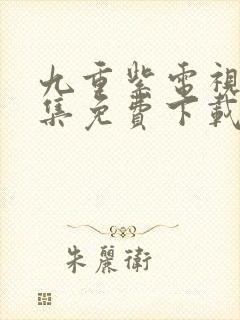 九重紫電視
集免費下載
朱麗衛